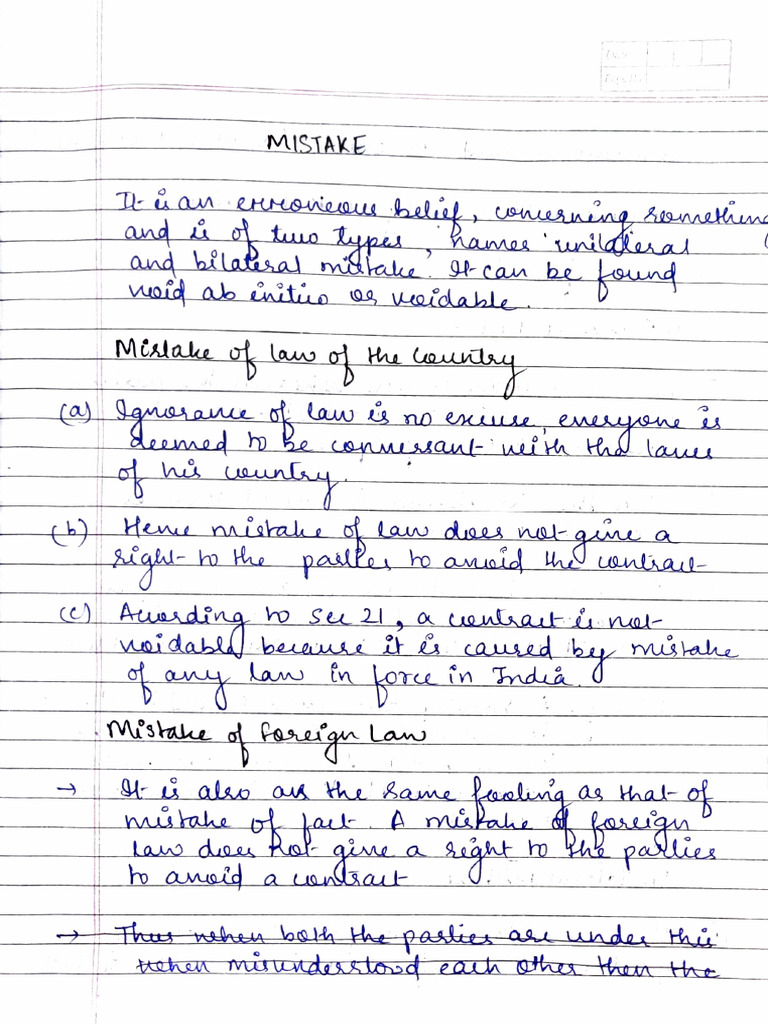 MISTAKE
It is an erroneous belief, concerning something
and is of two types, names unilateral
and bilateral mistake. It can be found
void ab initio or voidable.
Mistake of law of the Country
(a) Ignorance of law is no excuse, everyone is
deemed to be conversant with the laws
of his country.
(b) Hence mistake of law does not give a
right to the parties to avoid the contract
(c) According to Sec 21, a contract is not
voidable because it is caused by mistake
of any law in force in India.
Mistake of Foreign Law
→ It is also on the same footing as that of
mistake of fact. A mistake of foreign
law does not give a right to the parties
to avoid a contract
→ Thus when both the parties are under this
when misunderstood each other then the